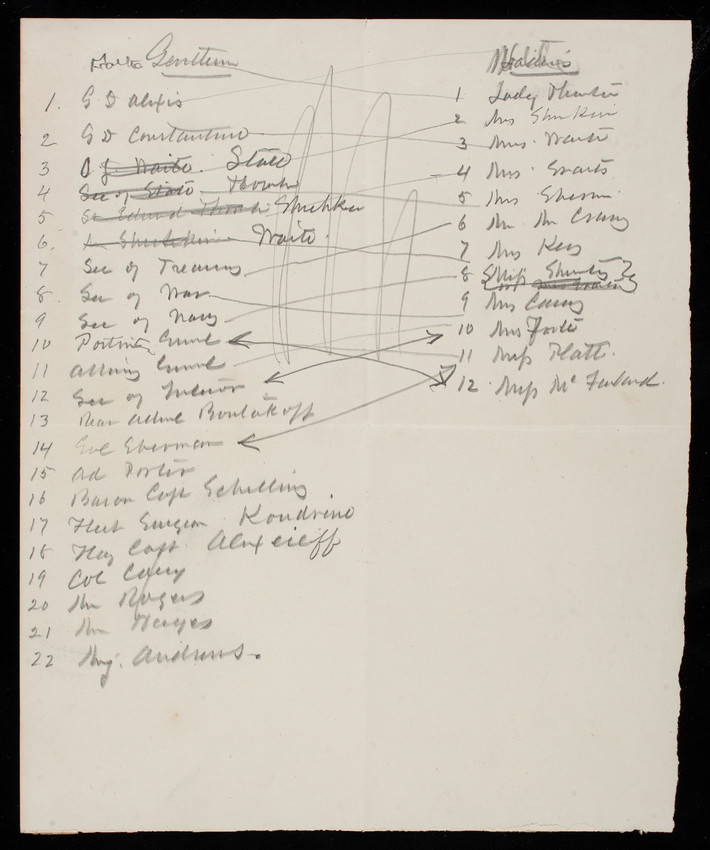 Gentlemen
1. G D Alexis
2 G D Constantine
3 C. J. Waite. State
4 Sec of State Thornton
5 Sir Edward Thornton Shishkin
6. Shishkin Waite.
7 Sec of Treasury
8. Sec of War
9 Sec of Navy
10 Postmas Genrl
11 Attorney Genrl
12 Sec of Interior
13 Rear Adml Boutakoff
14 Gel Sherman
15 Ad Porter
16 Baron Capt Schilling
17 Fleet Surgeon Koudrino
18 Flag Capt. Alexeieff
19 Col Casey
20 Mr Rogers
21 Mr Hayes
22 Maj. Andrews.
Ladies
1 Lady Thornton
2 Mrs Shishkin
3 Mrs. Waite
4 Mrs. Evarts
5 Mrs Sherman
6 Mrs Mc Crary
7 Mrs Key
8 Miss
9 Mrs Casey
10 Mrs Foote
11 Miss Platt.
12 Miss Mc Farland.